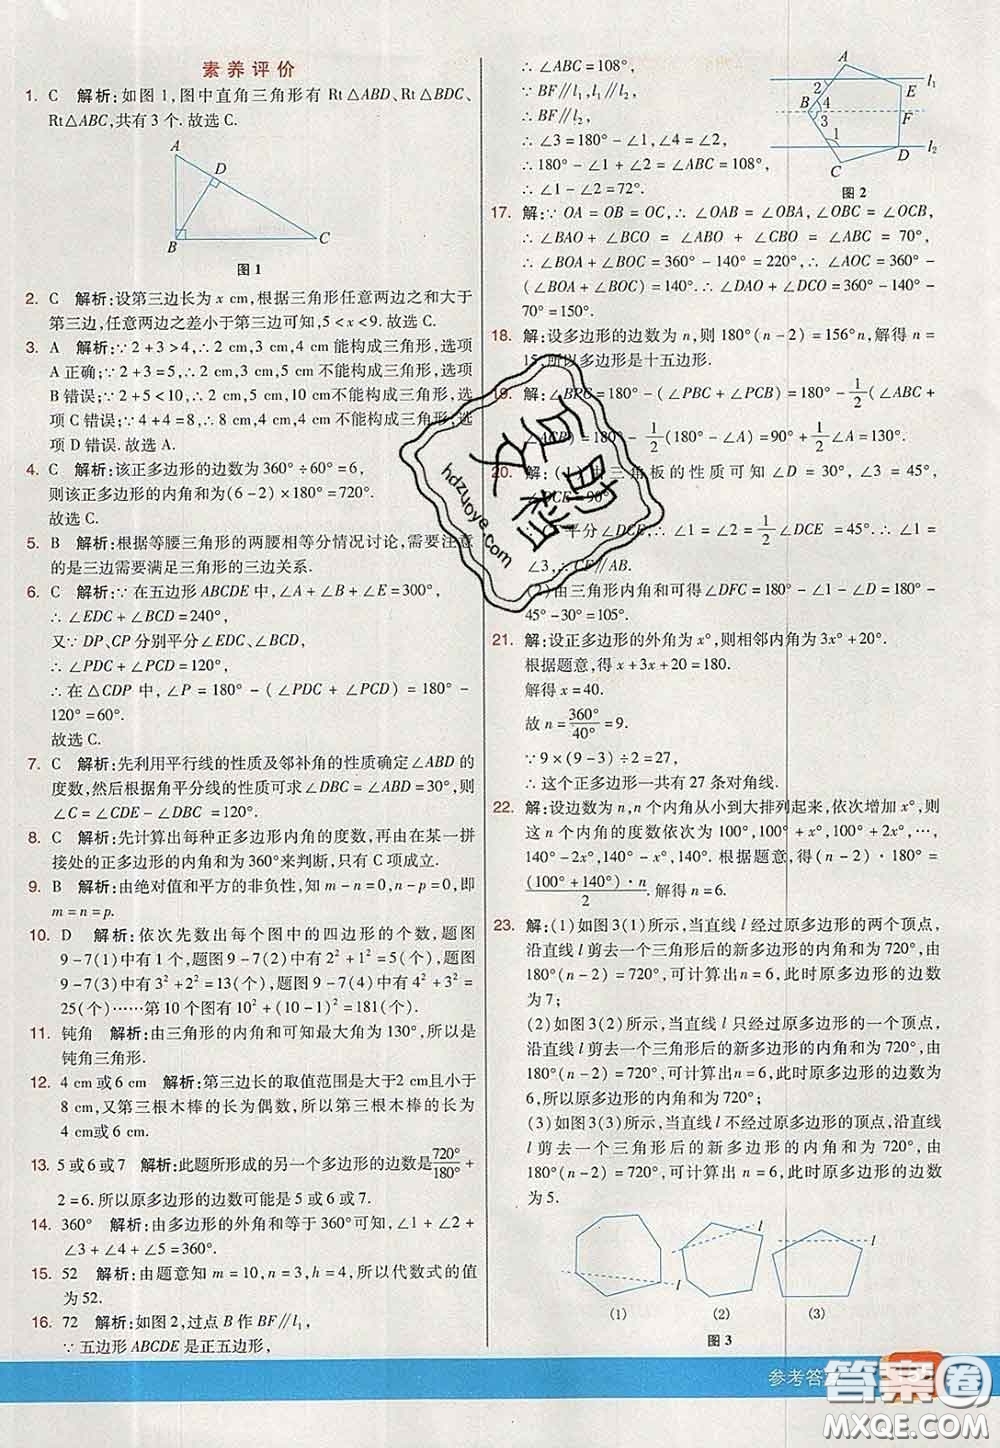 素养评价
1. C 解析:如图1,图中直角三角形有 Rt△ABD、Rt△BDC、
Rt△ABC,共有3个.故选C.
A
D
B
C
图1
2. C 解析:设第三边长为 x cm,根据三角形任意两边之和大于
第三边,任意两边之差小于第三边可知,5<x<9.故选C.
3. A 解析:∵2+3>4,∴2 cm,3 cm,4 cm能构成三角形,选项
A正确;∵2+3=5,∴2 cm,3 cm,5 cm不能构成三角形,选项
B错误;∵2+5<10,∴2 cm,5 cm,10 cm不能构成三角形,选
项C错误;∵4+4=8,∴8 cm,4 cm,4 cm不能构成三角形,选
项D错误.故选A.
4. C 解析:该正多边形的边数为360°÷60°=6,
则该正多边形的内角和为(6-2)×180°=720°.
故选C.
5. B 解析:根据等腰三角形的两腰相等分情况讨论,需要注意
的是三边需要满足三角形的三边关系.
6. C 解析:∵在五边形ABCDE中,∠A+∠B+∠E=300°,
∴∠EDC+∠BCD=240°,
又∵DP、CP分别平分∠EDC、∠BCD,
∴∠PDC+∠PCD=120°,
∴在△CDP中,∠P=180°-(∠PDC+∠PCD)=180°-
120°=60°.
故选C.
7. C 解析:先利用平行线的性质及邻补角的性质确定∠ABD的
度数,然后根据角平分线的性质可求出∠DBC=∠ABD=30°,则
∠C=∠CDE-∠DBC=120°.
8. C 解析:先计算出每种正多边形内角的度数,再由在某一拼
接处的正多边形的内角和为360°来判断,只有C项成立.
9. B 解析:由绝对值和平方的非负性,知m-n=0,n-p=0,即
m=n=p.
10. D 解析:依次先数出每个图中的四边形的个数,题图
9-7(1)中有1个,题图9-7(2)中有2²+1²=5(个),题图
9-7(3)中有3²+2²=13(个),题图9-7(4)中有4²+3²=
25(个)……第10个图有10²+(10-1)²=181(个).
11. 钝角 解析:由三角形的内角和可知最大角为130°,所以是
钝角三角形.
12. 4 cm或6 cm 解析:第三边长的取值范围是大于2 cm且小于
8 cm,又第三根木棒的长为偶数,所以第三根木棒的长为
4 cm或6 cm.
13. 5或6或7 解析:此题所形成的另一个多边形的边数是720°/180°
+2=6.所以原多边形的边数可能是5或6或7.
14. 360° 解析:由多边形的外角和等于360°可知,∠1+∠2+
∠3+∠4+∠5=360°.
15. 52 解析:由题意知m=10,n=3,h=4,所以代数式的值
为52.
16. 72 解析:如图2,过点B作BF∥l₁,
∵五边形ABCDE是正五边形,
∴∠ABC=108°,
∵BF∥l₁,l₁∥l₂,
∴BF∥l₂,
∴∠3=180°-∠1,∠4=∠2,
∴180°-∠1+∠2=∠ABC=108°,
∴∠1-∠2=72°.
A
2
E
l₁
B
4
3
F
1
D
l₂
C
图2
17. 解:∵OA=OB=OC,∴∠OAB=∠OBA,∠OBC=∠OCB,
∴∠BAO+∠BCO=∠ABO+∠CBO=∠ABC=70°,
∴∠BOA+∠BOC=360°-2×70°=220°,∴∠AOC=360°-
(∠BOA+∠BOC)=140°.∴∠DAO+∠DCO=360°-
∠D-∠AOC=150°.
18. 解:设多边形的边数为n,则180°(n-2)=156°n,解得n=
15,所以多边形是十五边形.
19. 解:∠BPC=180°-(∠PBC+∠PCB)=180°-1/2(∠ABC+
∠ACB)=180°-1/2(180°-∠A)=90°+1/2∠A=130°.
20. 解:(1)由三角板的性质可知∠D=30°,∠3=45°,
∠DCE=90°.
平分∠DCE,∴∠1=∠2=1/2∠DCE=45°.∴∠1=
∠3,∴CF∥AB.
(2)由三角形内角和可得∠DFC=180°-∠1-∠D=180°-
45°-30°=105°.
21. 解:设正多边形的外角为x°,则相邻内角为3x°+20°.
根据题意,得x+3x+20=180.
解得x=40.
故n=360°/40°=9.
∵9×(9-3)÷2=27,
∴这个正多边形一共有27条对角线.
22. 解:设边数为n,n个内角从小到大排列起来,依次增加x°,则
这n个内角的度数依次为100°,100°+x°,100°+2x°,…,
140°-2x°,140°-x°,140°.根据题意,得(n-2)·180°=
(100°+140°)·n/2.解得n=6.
23. 解:(1)如图3(1)所示,当直线l经过原多边形的两个顶点,
沿直线l剪去一个三角形后的新多边形的内角和为720°,由
180°(n-2)=720°,可计算出n=6,此时原多边形的边数
为7;
(2)如图3(2)所示,当直线l只经过原多边形的一个顶点,
沿直线l剪去一个三角形后的新多边形的内角和为720°,由
180°(n-2)=720°,可计算出n=6,此时原多边形的边数
为6;
(3)如图3(3)所示,当直线l不经过原多边形的顶点,沿直线
l剪去一个三角形后的新多边形的内角和为720°,由
180°(n-2)=720°,可计算出n=6,此时原多边形的边数
为5.
l
l
l
(1)
(2)
(3)
图3
hdzuoye.com
参考答
答案圈
MXQE.COM